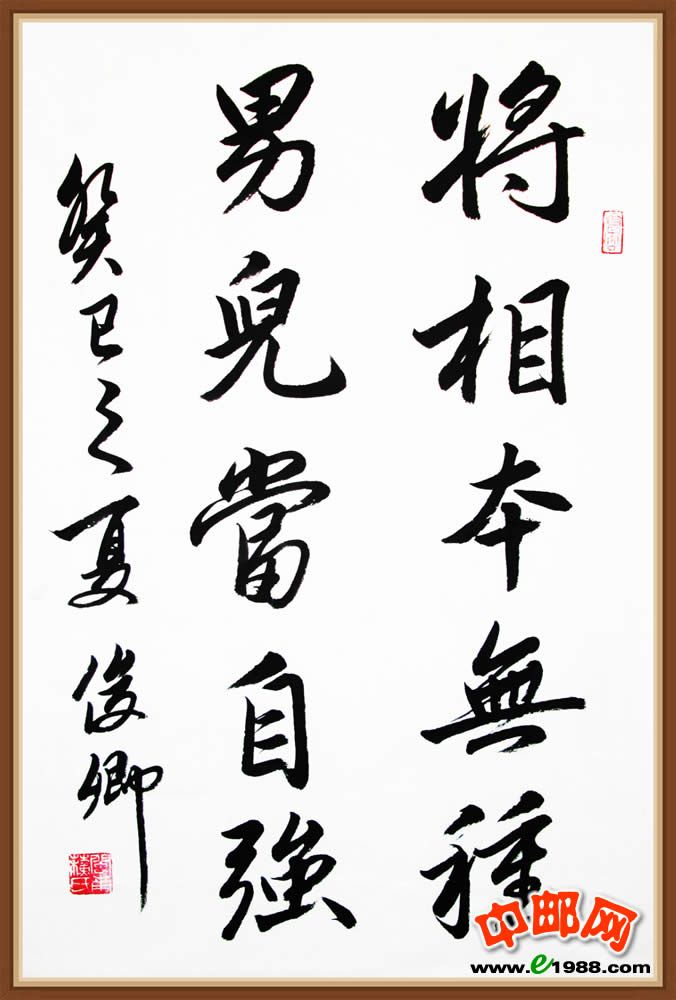 将相本無種
男兒當自強
癸巳之夏 俊卿
中邮网
www.e1988.com